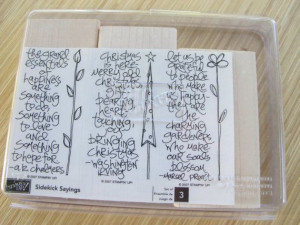 the grand
essentials
of
happiness
are
something
to do
something
to love
and
something
to hope for
-a.k. chalmers
© 2007 STAMPIN' UP!
Christmas
is here
merry old
Christmas
gift
bearing
heart
touching
joy
bringing
Christmas
-washington
irving
© 2007 STAMPIN' UP!
let us be
grateful
to people
who make
us happy
they are
the
charming
gardeners
who make
our souls
blossom
-marcel proust
© 2007 STAMPIN' UP!
Sidekick Sayings
Set of
3